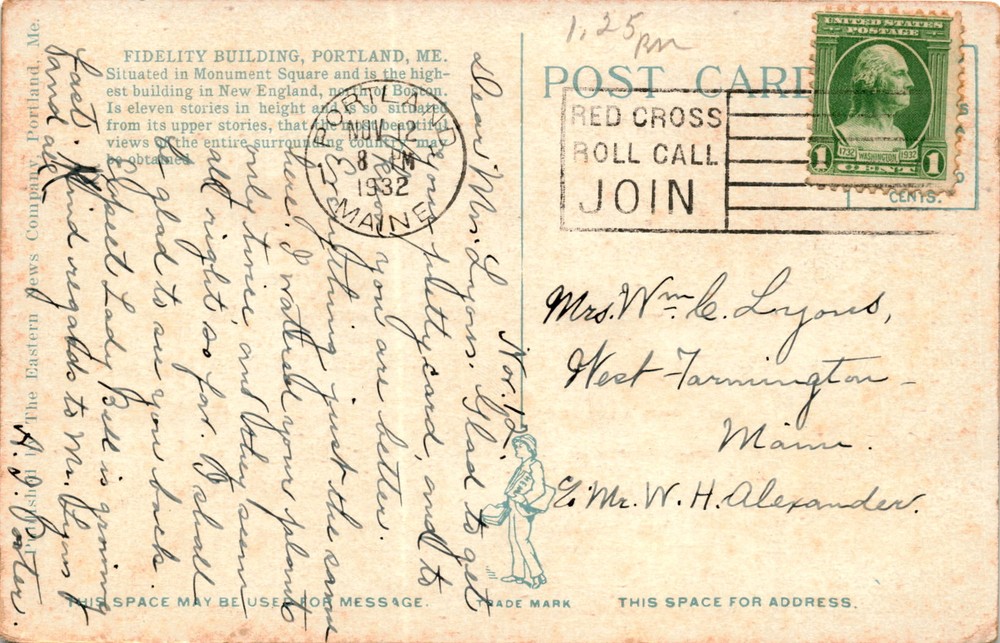 FIDELITY BUILDING, PORTLAND, ME.
Situated in Monument Square and is the high-
est building in New England, north of Boston.
Is eleven stories in height and is so situated
from its upper stories, that the most beautiful
views of the entire surrounding country may
be obtained.
Published by The Eastern News Company, Portland, Me.
PORTLAND
NOV 12
8 PM
1932
MAINE
1.25
POST CARD
RED CROSS
ROLL CALL
JOIN
UNITED STATES
POSTAGE
1732 WASHINGTON 1932
1 CENT 1
CENTS.
Nov. 12
Dear Mrs. Lyons, Glad to get
your pretty card, and to
know you are better.
Everything just the same
here. I watered your plants
only twice, and they seem
all right so far. I shall
be glad to see you back.
I expect Lady Bell is growing
fast. Kind regards to Mr. Lyons
A. J.
Mrs. Wm. C. Lyons,
West Farmington -
Maine.
c/o Mr. W. H. Alexander.
THIS SPACE MAY BE USED FOR MESSAGE.
TRADE MARK
THIS SPACE FOR ADDRESS.